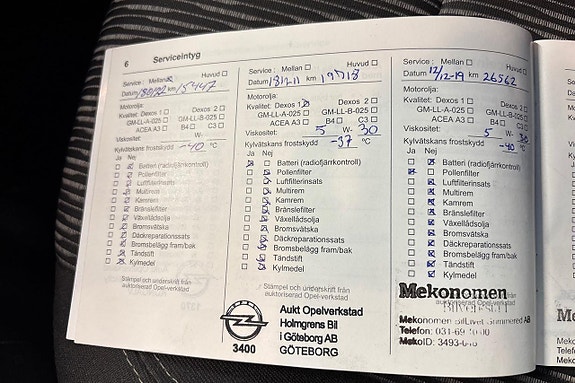 6 Serviceintyg
Service: Mellan Huvud
Datum km 15447
Motorolja:
Kvalitet: Dexos 1 Dexos 2
GM-LL-A-025 GM-LL-B-025
ACEA A3 B4 C3
Viskositet: W-
Kylvätskans frostskydd -40 °C
Ja Nej
Batteri (radiofjärrkontroll)
Pollenfilter
Luftfilterinsats
Multirem
Kamrem
Bränslefilter
Växellådsolja
Bromsvätska
Däckreparationssats
Bromsbelägg fram/bak
Tändstift
Kylmedel
Stämpel och underskrift från
auktoriserad Opel-verkstad
Service: Mellan Huvud
Datum km 19718
Motorolja:
Kvalitet: Dexos 1 Dexos 2
GM-LL-A-025 GM-LL-B-025
ACEA A3 B4 C3
Viskositet: 5 W- 30
Kylvätskans frostskydd -37 °C
Ja Nej
Batteri (radiofjärrkontroll)
Pollenfilter
Luftfilterinsats
Multirem
Kamrem
Bränslefilter
Växellådsolja
Bromsvätska
Däckreparationssats
Bromsbelägg fram/bak
Tändstift
Kylmedel
Stämpel och underskrift från
auktoriserad Opel-verkstad
OPEL
3400
Aukt Opelverkstad
Holmgrens Bil
i Göteborg AB
GÖTEBORG
Service: Mellan Huvud
Datum 12/12-19 km 26562
Motorolja:
Kvalitet: Dexos 1 Dexos 2
GM-LL-A-025 GM-LL-B-025
ACEA A3 B4 C3
Viskositet: 5 W- 30
Kylvätskans frostskydd -40 °C
Ja Nej
Batteri (radiofjärrkontroll)
Pollenfilter
Luftfilterinsats
Multirem
Kamrem
Bränslefilter
Växellådsolja
Bromsvätska
Däckreparationssats
Bromsbelägg fram/bak
Tändstift
Kylmedel
Mekonomen
Bilverkstad
Mekonomen BilLivet Sönnered AB
Telefon: 031-69
MekoID: 3493